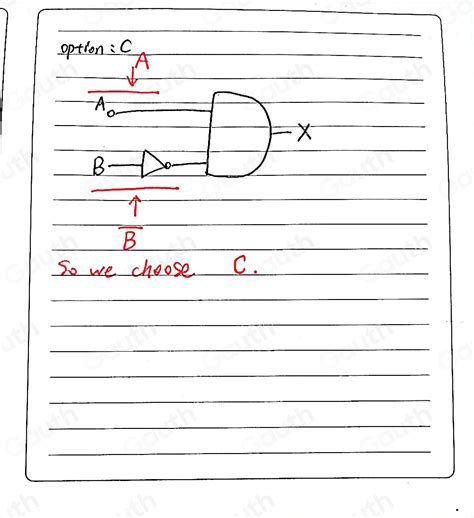 option : C
A
A
X
B
B
So we choose C.
Gauth